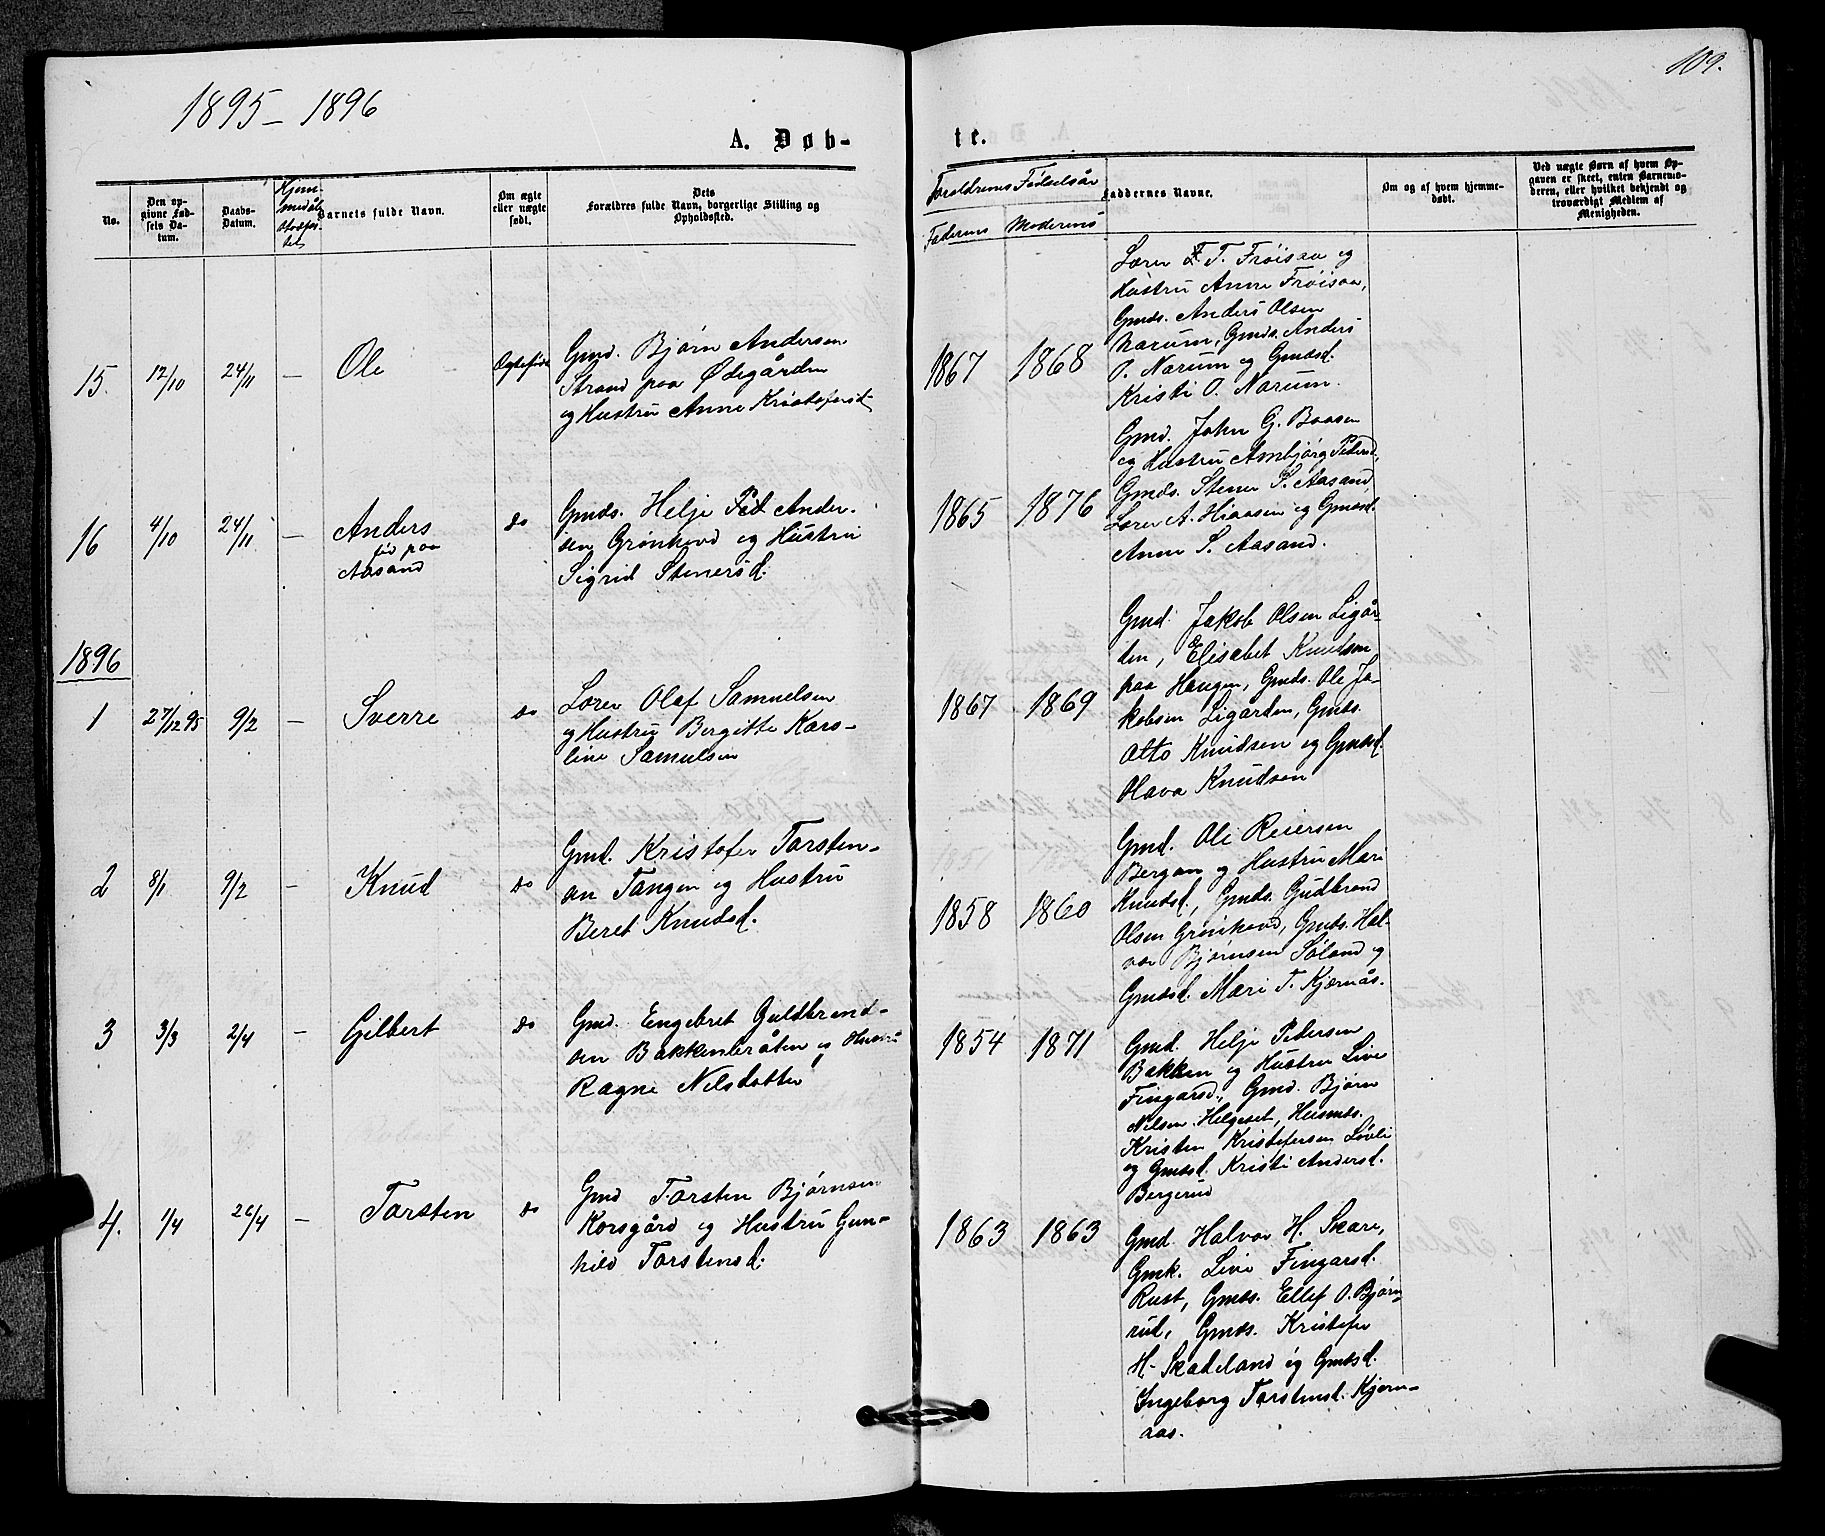 1895 - 1896
109.
A. Døb-
te.
No.
Den op-
givne Fød-
sels Da-
tum.
Daabs-
Datum.
Hjem-
medåb
Barnets fulde Navn.
Om ægte
eller uægte
født.
Dets
Forældres fulde Navn, borgerlige Stilling og
Opholdssted.
Forældrenes Fødselsår
Faderens
Moderens
Faddernes Navne.
Om og af hvem hjemme-
døbt.
Ved uægte Børn af hvem Op-
gaven er skeet, enten Barnemo-
deren, eller hvilket bekjendt og
troværdigt Medlem af
Menigheden.
15.
12/10
24/11
—
Ole
Ægtefødt
Gmd. Bjørn Andersen
Strand paa Ødegården
og Hustru Anne Kristofersd.
1867
1868
Lærer T. Frøisaa og
Hustru Anne Frøisaa,
Gmds. Anders Olsen
Narum, Gmds. Anders
O. Narum og Gmdsd.
Kristi O. Narum.
16
4/10
24/11
—
Anders
fød paa
Aasand
do
Gmds. Helje Ped Ander-
sen Grønhovd og Hustru
Sigrid Stenersd.
1865
1876
Gmd. John G. Baasen
og Hustru Ambjørg Pedersd,
Gmds. Stener S. Aasand
Lærer A. Hiaasen og Gmdsd.
Anne S. Aasand.
1896
1
27/12 95
9/2
—
Sverre
do
Lærer Olaf Samuelsen
og Hustru Bergitte Karo-
line Samuelsen
1867
1869
Gmd. Jakob Olsen Ligår-
den, Elisabet Knudsen
paa Haugen, Gmds. Ole Ja-
kobsen Ligården, Gmds.
Otto Knudsen og Gmdsd.
Olava Knudsen
2
8/1
9/2
—
Knud
do
Gmd. Kristofer Torsten-
sen Tangen og Hustru
Beret Knudsd.
1858
1860
Gmd. Ole Reiersen
Bergan og Hustru Mari
Knudsd., Gmds. Gudbrand
Olsen Grønhovd, Gmds. Hal-
vor Bjørnsen Søland og
Gmdsd. Mari T. Kjærnås.
3
3/3
2/4
—
Gilbert
do
Gmd. Engebret Guldbrand-
sen Bakkenbråten og Hustru
Ragne Nilsdotter
1854
1871
Gmd. Helje Pedersen
Bakken og Hustru Live
Fingarsd., Gmd. Bjørn
Nilsen Helgeset, Husmds.
Kristen Kristofersen Løvli
og Gmdsd. Kristi Andersd.
Bergerud
4.
1/4
26/4
—
Torsten
do
Gmd Torsten Bjørnsen
Korsgård og Hustru Gun-
hild Torstensd.
1863
1863
Gmd. Halvor H. Skare,
Gmk. Live Fingarsd.
Rust, Gmds. Ellef O. Bjørn-
rud, Gmds. Kristofer
H. Skadeland og Gmdsd.
Ingeborg Torstensd. Kjærn-
aas.